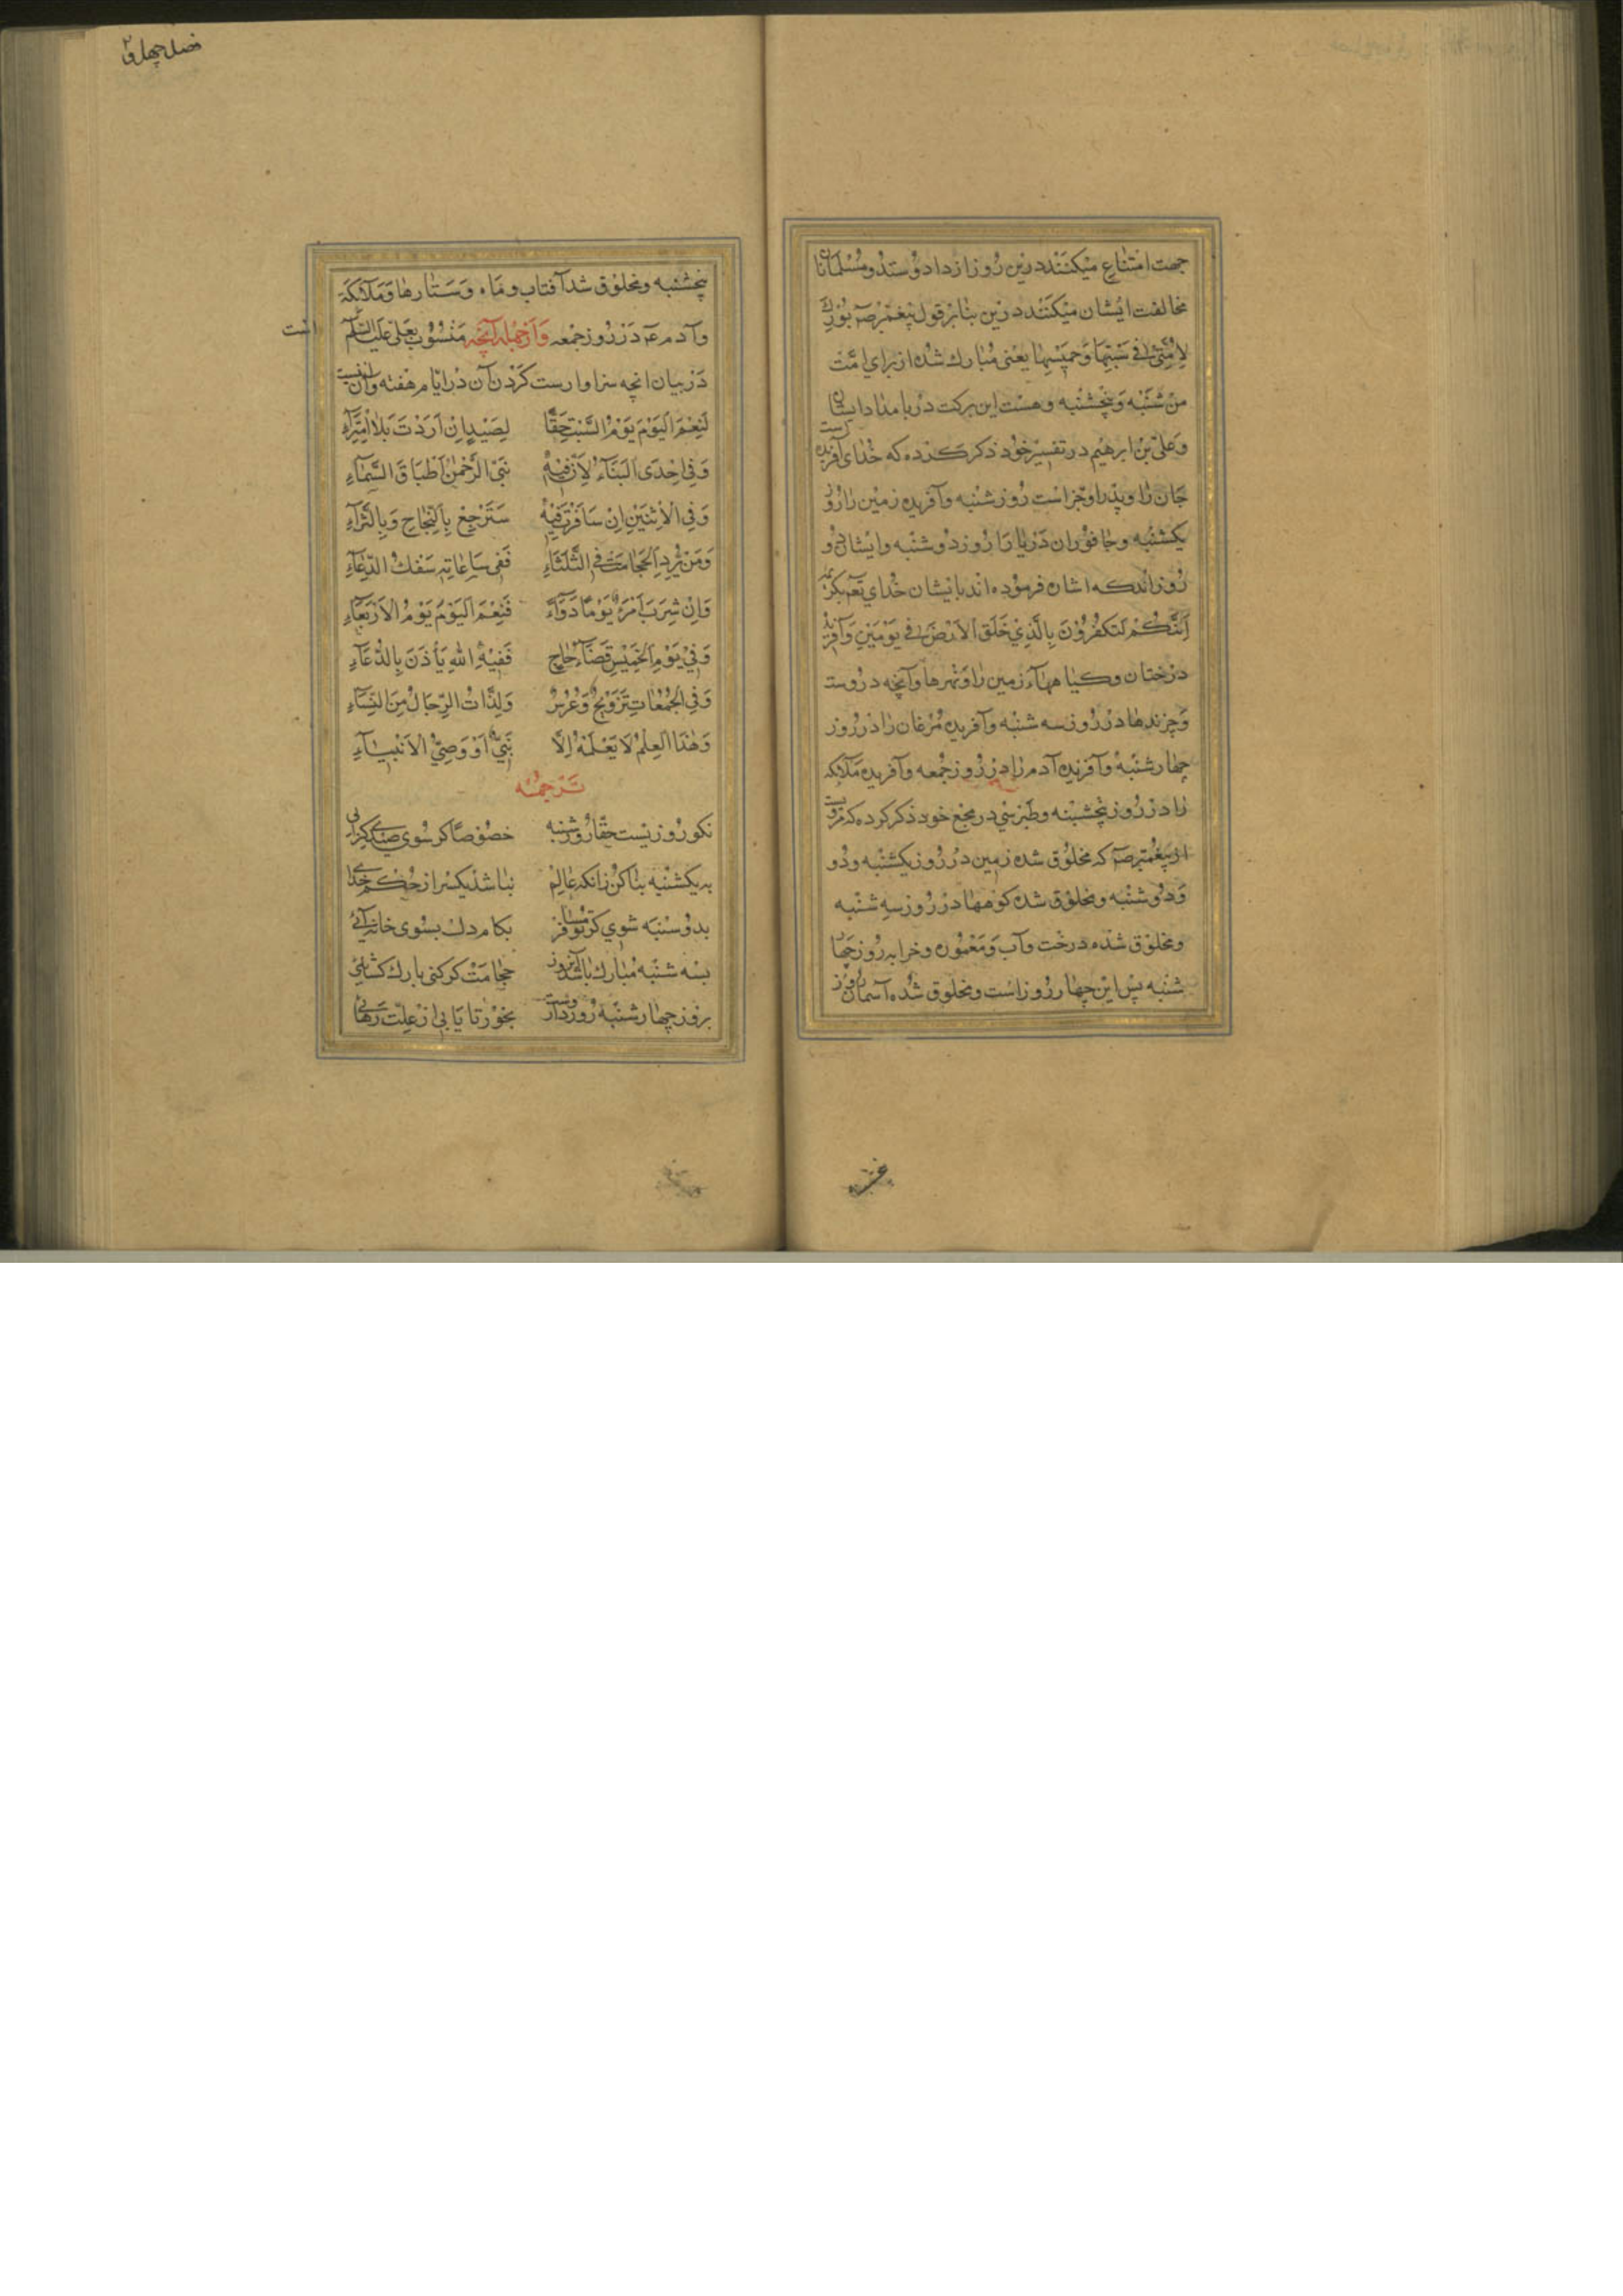 جهت امتناع میکنند درین روز از داد و ستد و مسلمانان
مخالفت ایشان میکنند درین بنابر قول پیغمبر صم بورک
لامتی فی سبتها و خمیسها یعنی مبارک شده از برای امت
من شنبه و پنجشنبه و هست این برکت در بامداد ایشان
و علی بن ابرهیم در تفسیر خود ذکر کرده که خدای آفریده است
جان را و پدر او جز است روز شنبه و آفریده زمین را روز
یکشنبه و جانوران دریا را روز دوشنبه و ایشان دو
روزاند که اشاره فرموده اند بایشان خدای تعم بکریمه
ائنکم لتکفرون بالذی خلق الارض فی یومین و آفریده
درختان و کیاههاء زمین را و نهرها و آنچه دروست
و چرندها در روز سه شنبه و آفریده مرغان را در روز
چهارشنبه و آفریده آدم را در روز جمعه و آفریده ملائکه
را در روز پنجشبنه و طبرسی در مجمع خود ذکر کرده که مرویست
از پیغمبر صم که مخلوق شده زمین در روز یکشنبه و دو
و دوشنبه و مخلوق شده کوهها در روز سه شنبه
و مخلوق شده درخت و آب و معموره و خرابه روز چهار
شنبه پس این چهار روز است و مخلوق شده آسمان روز
پنجشنبه
فصل چهل و
پنجشنبه و مخلوق شد آفتاب و ماه و ستارها و ملائکة
و آدم عم در روز جمعه و از جمله آنچه منسوب بعلی علیه السلم است
در بیان انچه سزاوارست کردن آن در ایام هفته و آن اینست
لنعم الیوم یوم السبت حقا لصید ان اردت بلا امتراء
و فی احدی البناء لان فیه بنی الرحمن اطباق السماء
و فی الاثنین ان سافرت فیه سترجع بالنجاح و بالثراء
و من یرد الحجامت فی الثلثاء ففی ساعاته سفک الدماء
و ان شرب امرء یوما دواء فنعم الیوم یوم الاربعاء
و فی یوم الخمیس قضاء حاج ففیه الله یأذن بالدعاء
و فی الجمعات تزویج و عرس و لذات الرجال من النساء
و هذا العلم لا یعلمه الا نبی او وصی الانبیاء
ترجمه
نکو روزیست حقا روز شنبه خصوصا کر سوی صیدی کرایی
به یکشنبه بنا کن زانکه عالم نباشد یکسر از حکم خدای
بدوسنبه شوی کر تو مسافر بکام دل بسوی خانه آئی
بسه شنبه مبارک باشد آنروز حجامت کر کنی یا رک کشائی
بروز چهارشنبه روز داروست بخور تا یابی از علت رهائی